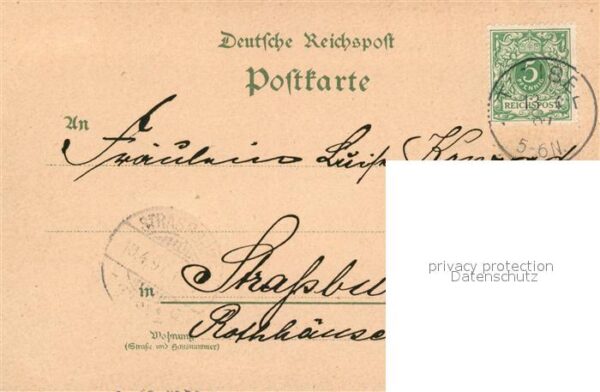 Deutsche Reichspost
Postkarte
5
PFENNIG
REICHSPOST
5-6N.
An
Fräulein Luise
STRASSBURG
in Straßbu
Wohnung
(Straße und Hausnummer)
privacy protection
Datenschutz